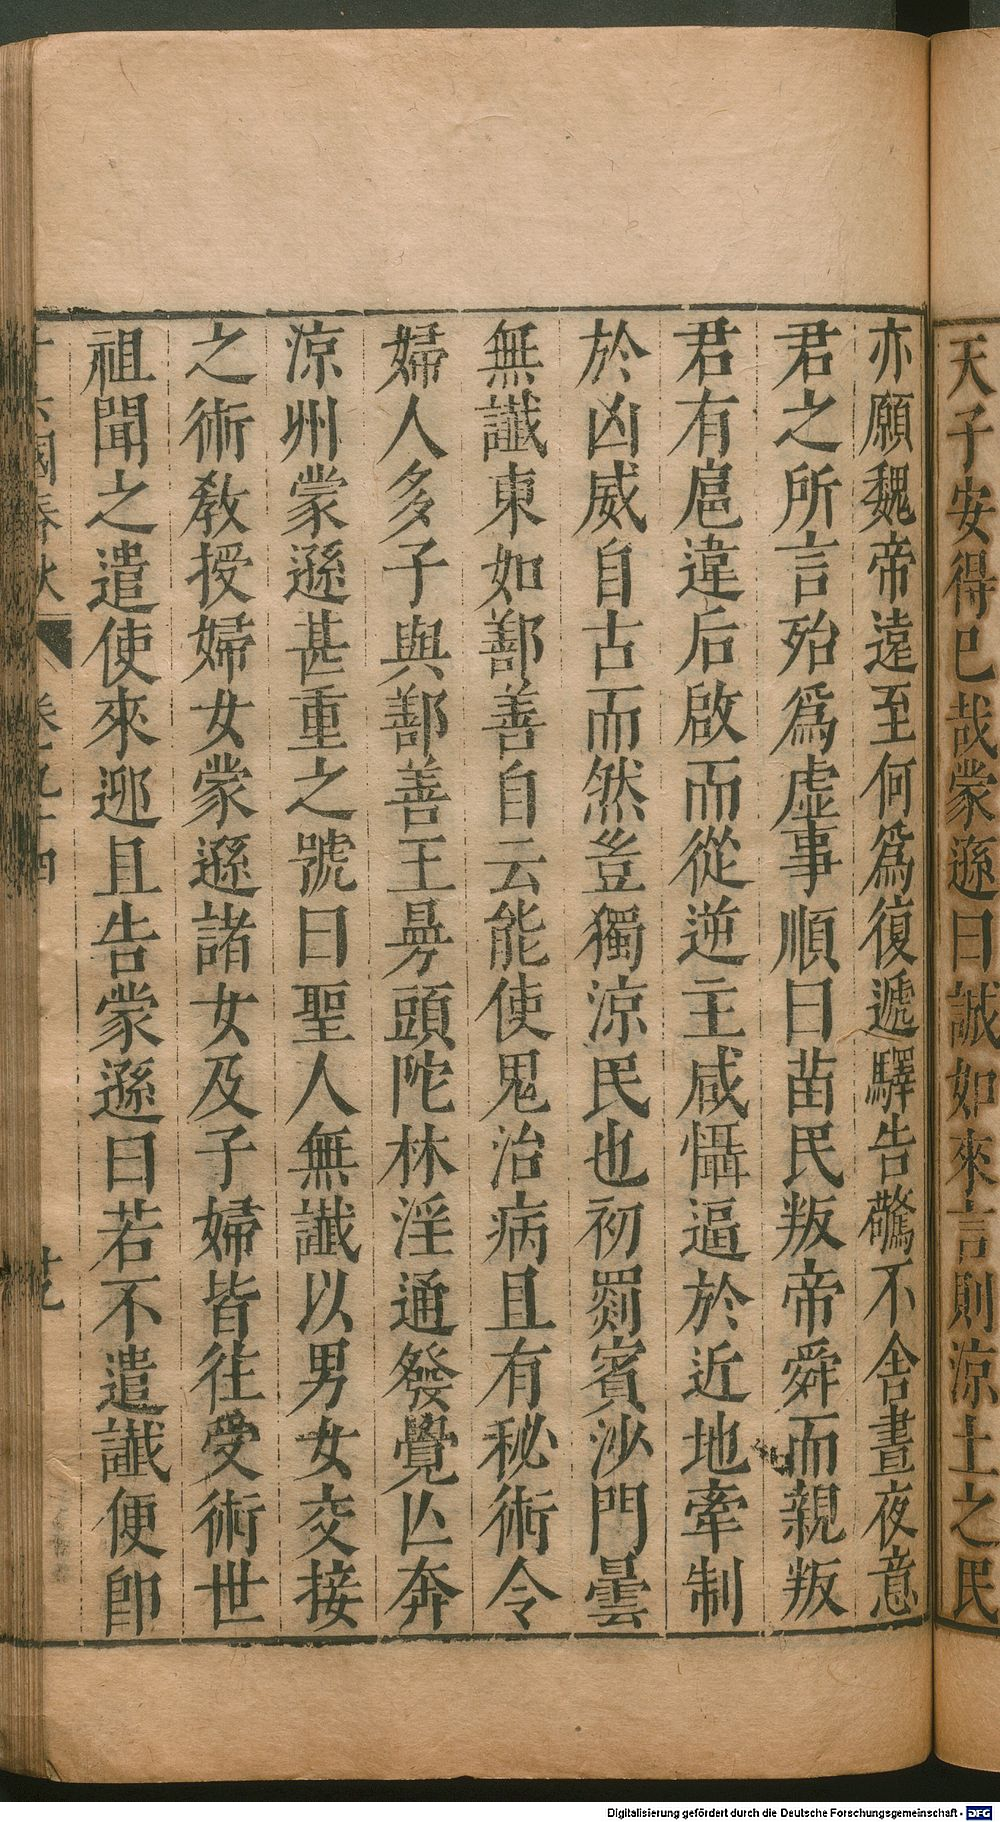 天子安得已哉蒙遜曰誠如來言則涼土之民
亦願魏帝遠至何爲復遞驛告驚不舍晝夜意
君之所言殆爲虛事順曰苗民叛帝舜而親叛
君有扈違后啟而從逆主咸懾逼於近地牽制
於凶威自古而然豈獨涼民也初罽賓沙門曇
無讖東如鄯善自云能使鬼治病且有秘術令
婦人多子與鄯善王妹曼頭陀林淫通發覺亡奔
涼州蒙遜甚重之號曰聖人無讖以男女交接
之術教授婦女蒙遜諸女及子婦皆往受術世
祖聞之遣使來迎且告蒙遜曰若不遣讖便卽
十六國春秋 卷之九十四
Digitalisierung gefördert durch die Deutsche Forschungsgemeinschaft - DFG